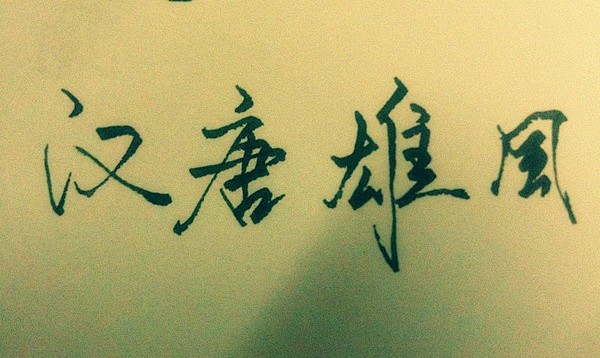 汉唐雄风